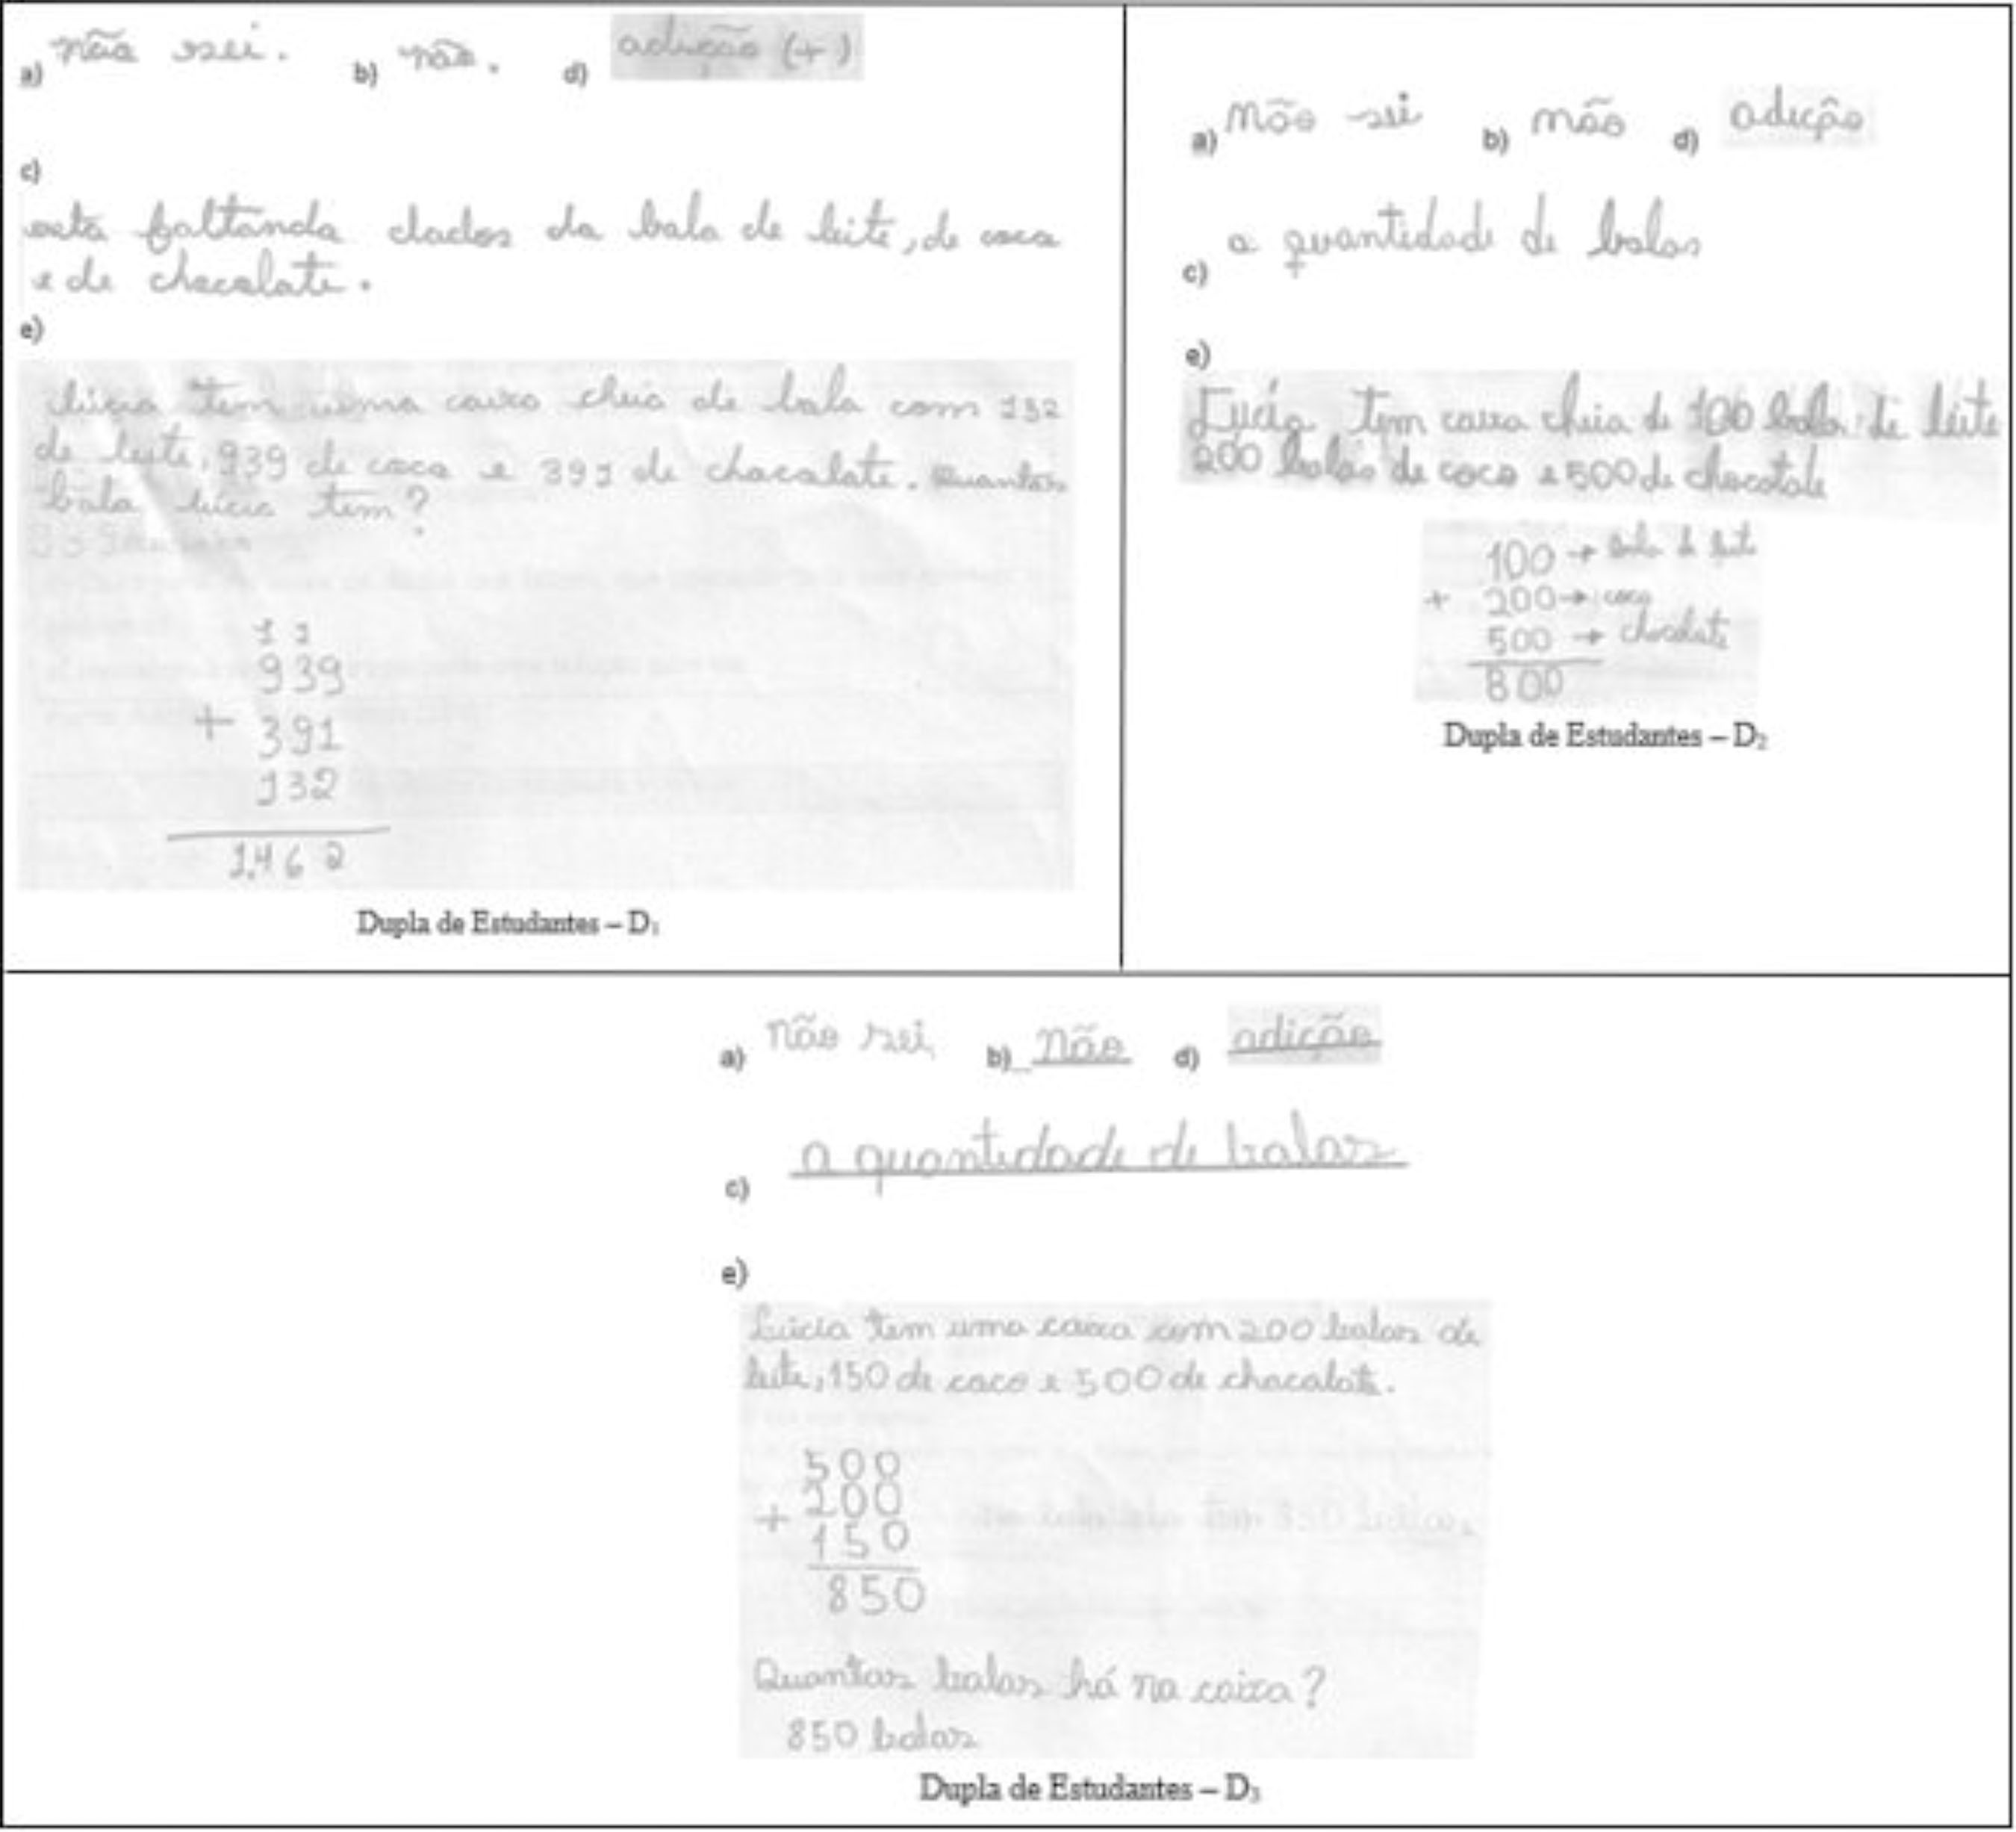 a) não sei. b) não. d) adição (+)
c)
está faltando dados da bala de leite, de coco
e de chocolate.
e)
Lúcia tem uma caixa cheia de bala com 132
de leite, 939 de coco e 391 de chocolate. Quantas
bala Lúcia tem?
1 1
939
+ 391
132
1.462
Dupla de Estudantes – D₁
a) Não sei b) não d) adição
c) a quantidade de balas
e)
Lúcia tem caixa cheia de 100 bala de leite
200 balas de coco e 500 de chocolate
100 → bala de leite
+ 200 → coco
500 → chocolate
800
Dupla de Estudantes – D₂
a) Não sei b) Não d) adição
c) a quantidade de balas
e)
Lúcia tem uma caixa com 200 balas de
leite, 150 de coco e 500 de chocalate.
500
+ 200
150
850
Quantas balas há na caixa?
850 balas
Dupla de Estudantes – D₃